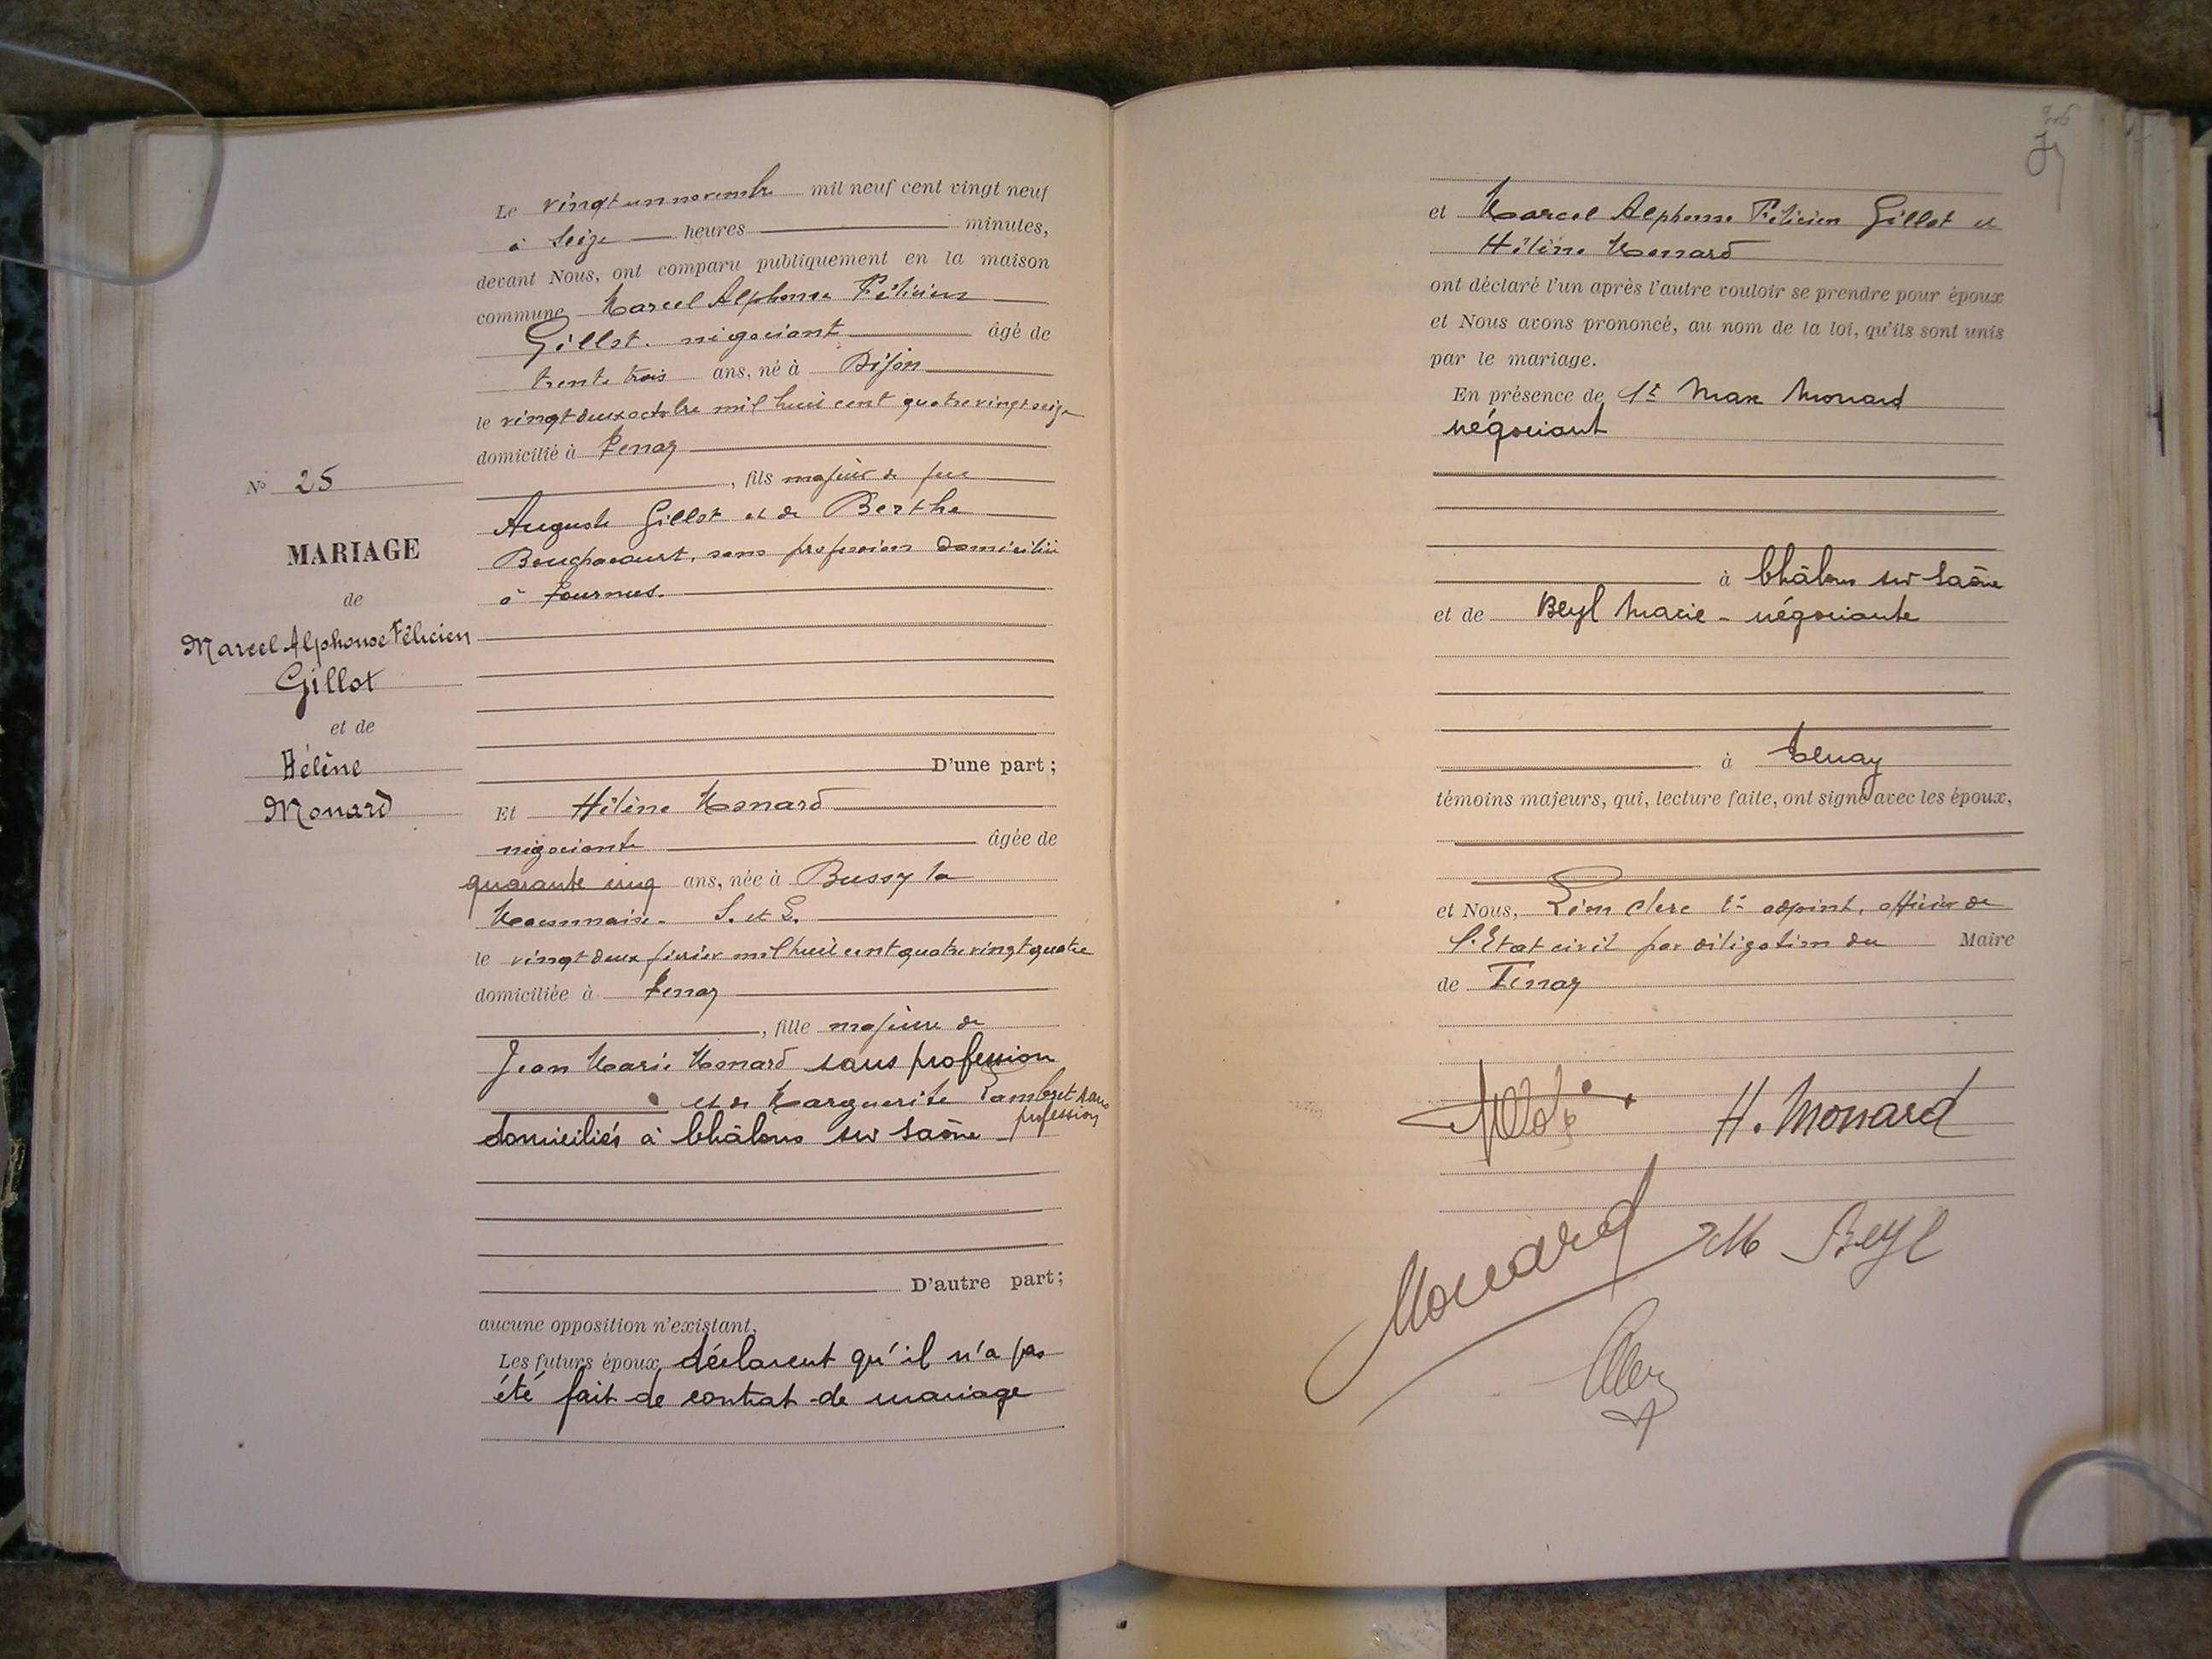 Le vingt un novembre mil neuf cent vingt neuf
à Seize heures minutes,
devant Nous, ont comparu publiquement en la maison
commune Marcel Alphonse Félicien
Gillot. négociant âgé de
trente trois ans, né à Dijon
le vingt deux octobre mil huit cent quatre vingt seize
domicilié à Tenay
, fils majeur de feu
Auguste Gillot et de Berthe
sans profession domiciliée
à Tournus.
D'une part ;
N° 25
MARIAGE
de
Marcel Alphonse Félicien
Gillot
et de
Hélène
Monard
Et Hélène Monard
négociante âgée de
quarante cinq ans, née à Bussy la
Maconnaise. S. et L.
le vingt deux février mil huit cent quatre vingt quatre
domiciliée à Tenay
, fille majeure de
Jean Marie Monard sans profession
et de Marguerite Lambret sans
profession
domiciliés à Châlons sur Saône
D'autre part ;
aucune opposition n'existant,
Les futurs époux déclarent qu'il n'a pas
été fait de contrat de mariage
et Marcel Alphonse Félicien Gillot et
Hélène Monard
ont déclaré l'un après l'autre vouloir se prendre pour époux
et Nous avons prononcé, au nom de la loi, qu'ils sont unis
par le mariage.
En présence de 1t Max Monard
négociant
à Châlons sur Saône
et de Beyl Marie - négociante
à Tenay
témoins majeurs, qui, lecture faite, ont signé avec les époux,
et Nous, Léon Clerc 1er adjoint, officier de
l'Etat civil par délégation du Maire
de Tenay
H. Monard
Monard
M Beyl